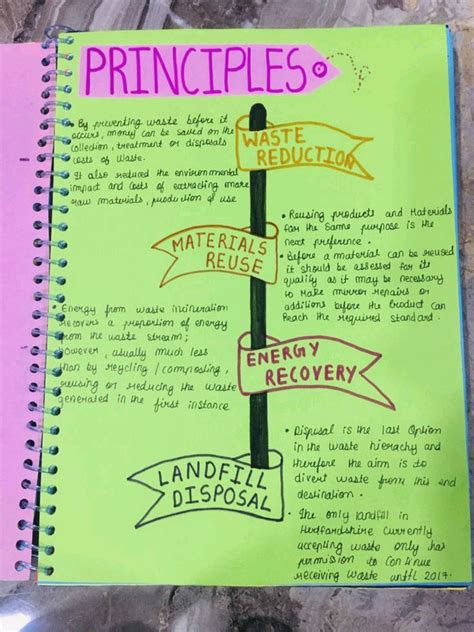 PRINCIPLES
• By preventing waste before it
occurs, money can be saved on the
collection, treatment or disposals
costs of waste.
• It also reduced the environmental
impact and costs of extracting more
raw materials, production of use
WASTE
REDUCTION
• Reusing products and materials
for the same purpose is the
next preference.
• Before a material can be reused
it should be assessed for its
quality as it may be necessary
to make mirror repairs or
additions before the product can
reach the required standard.
MATERIALS
REUSE
• Energy from waste incineration
recovers a proportion of energy
from the waste stream;
however, usually much less
than by recycling / composting,
reusing or reducing the waste
generated in the first instance
ENERGY
RECOVERY
• Disposal is the last option
in the waste hierachy and
therefore the aim is to
divert waste from this end
destination.
• The only landfill in
Hertfordshire currently
accepting waste only has
permission to continue
receiving waste until 2017.
LANDFILL
DISPOSAL